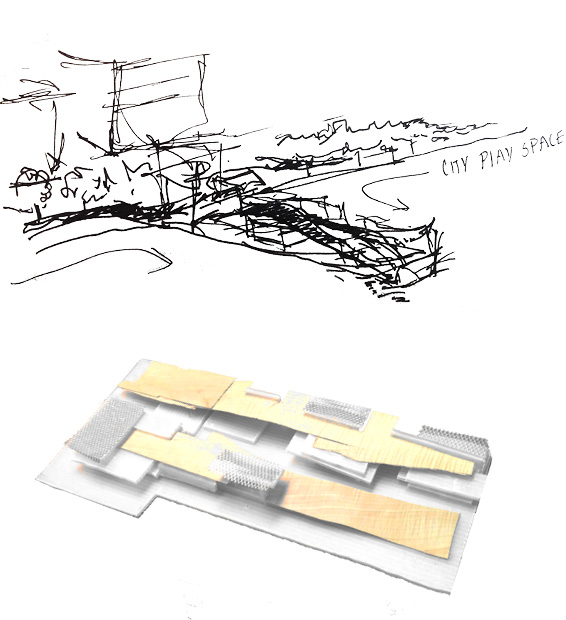 CITY PLAY SPACE